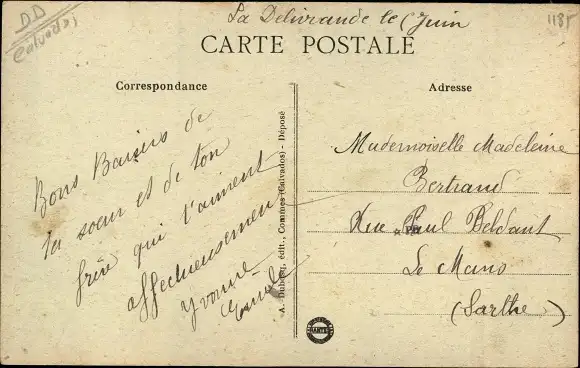 DD
Calvados
La Délivrande le 6 Juin
1185
CARTE POSTALE
Correspondance
Adresse
Bons Baisers de
ta soeur et de ton
frère qui t'aiment
affectueusement
Yvonne
A. Dubosq, édit., Commes (Calvados) - Déposé
Mademoiselle Madeleine
Bertrand
Rue Paul Beldant
Le Mans
(Sarthe)